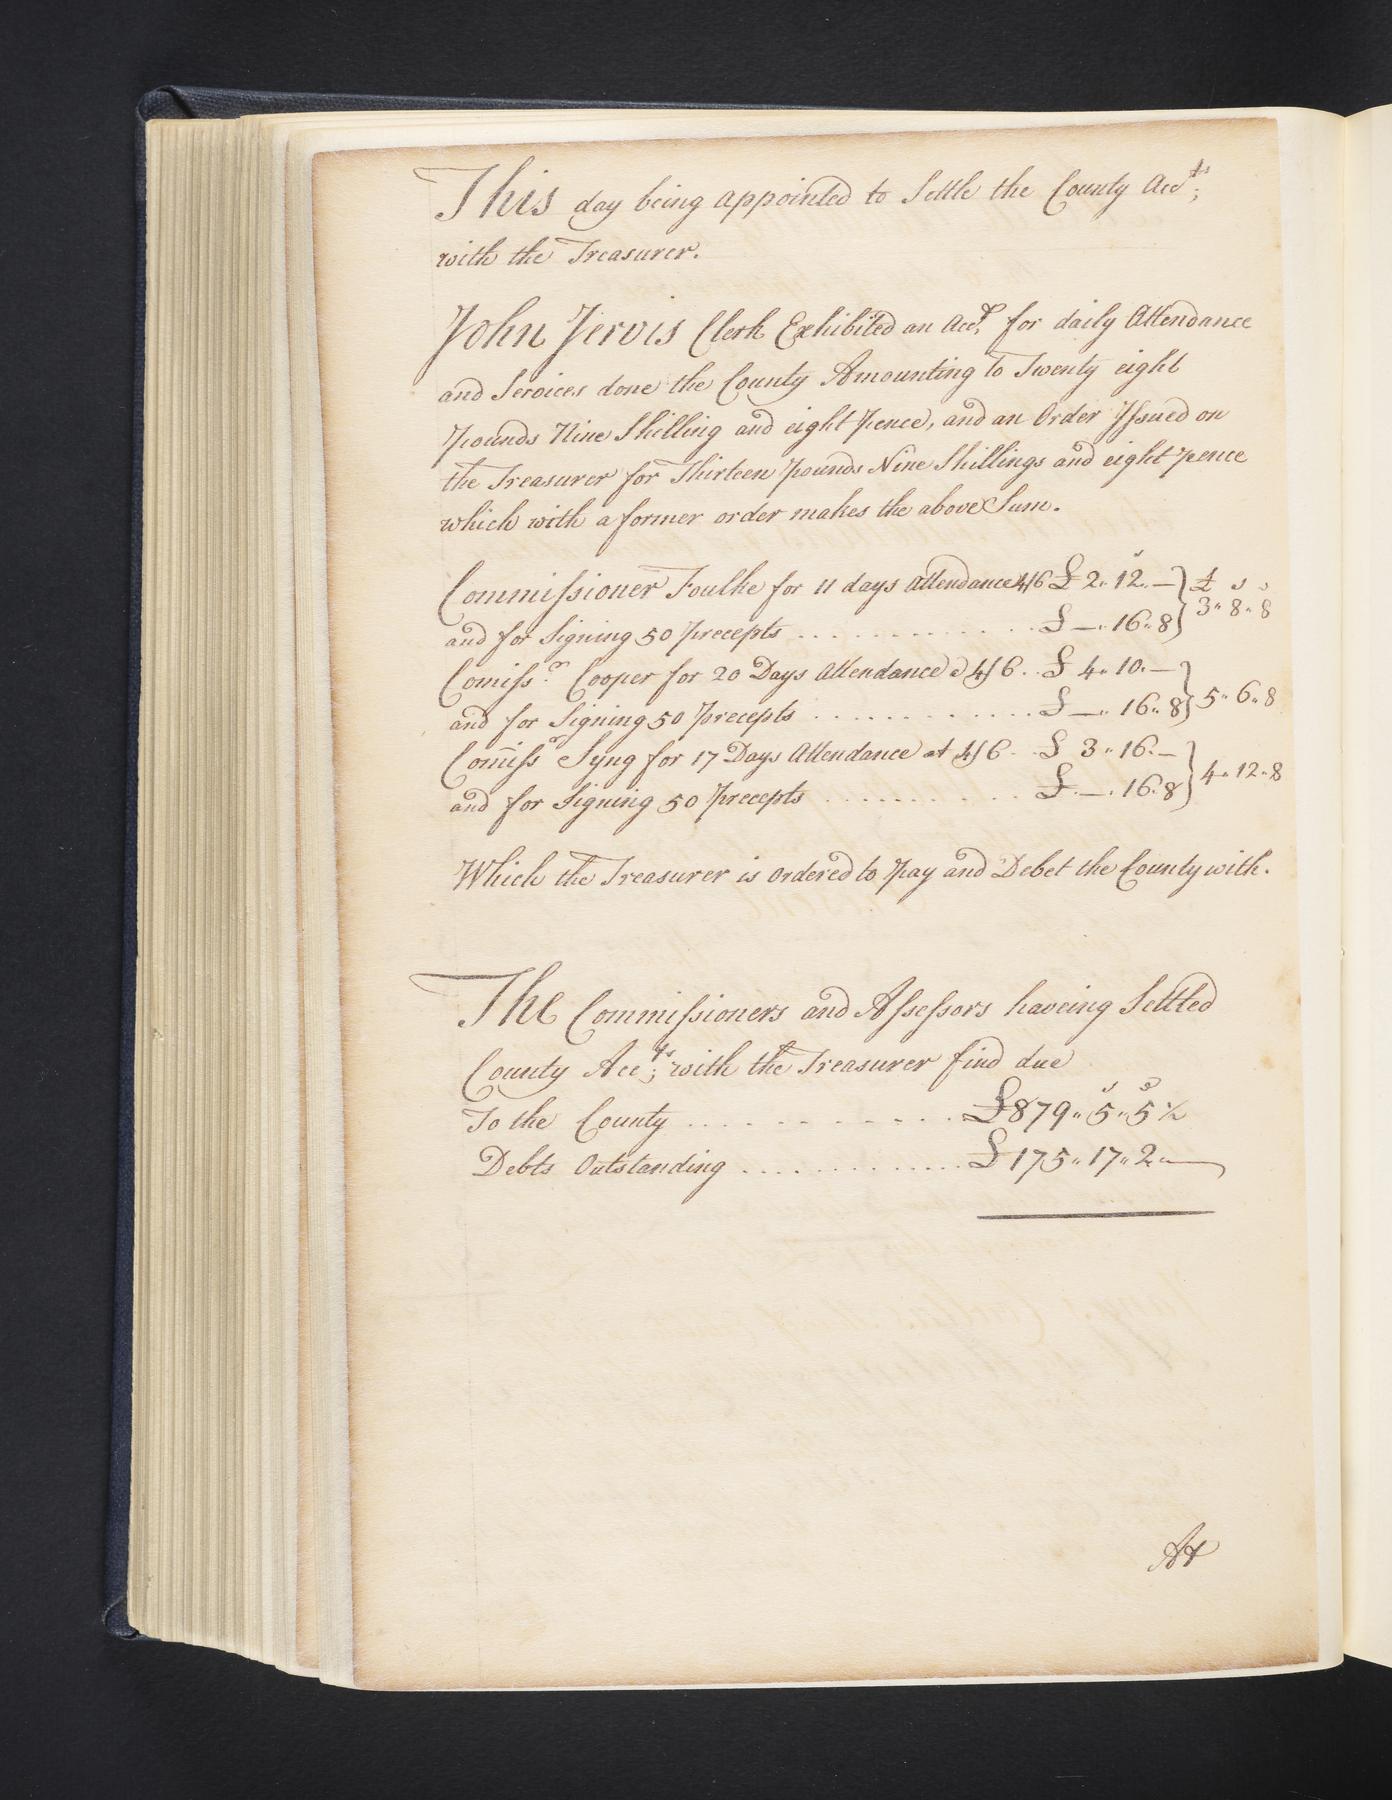 This day being appointed to Settle the County Accts;
with the Treasurer.
John Jervis Clerk Exhibited an Acct. for daily Attendance
and Services done the County Amounting to Twenty eight
pounds Nine Shilling and eight pence, and an Order Issued on
the Treasurer for Thirteen pounds Nine Shillings and eight pence
which with a former order makes the above Sum.
Commissioner Foulke for 11 days attendance 4/6 £ 2„ 12„ —
£ s
3„ 8„ 8
and for Signing 50 precepts ............ £ —„ 16„ 8
Comissr. Cooper for 20 Days Attendance @ 4/6 .. £ 4„ 10. —
5„ 6„ 8
and for Signing 50 precepts ............ £ —„ 16„ 8
Com̄issr Syng for 17 Days Attendance at 4/6 .. £ 3„ 16. —
4„ 12„ 8
and for Signing 50 Precepts .......... £ . — . 16„ 8
Which the Treasurer is ordered to pay and Debet the County with.
The Commissioners and Assessors haveing Settled
County Accts; with the Treasurer find due
To the County ............ £879„ 5„ 5½
Debts Outstanding ............ £175„ 17„ 2„ —
At